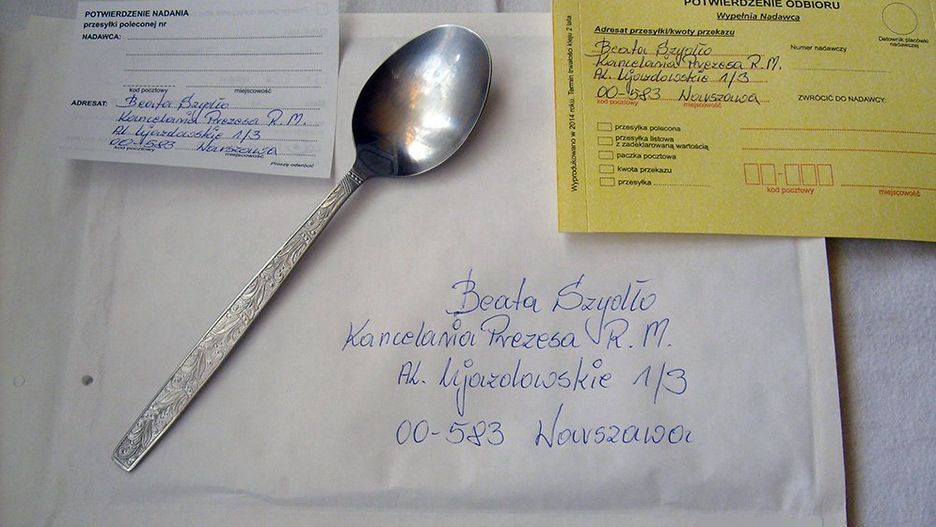 POTWIERDZENIE NADANIA
przesyłki poleconej nr
NADAWCA:
kod pocztowy
miejscowość
ADRESAT: Beata Szydło
Kancelaria Prezesa R.M.
AL. Ujazdowskie 1/3
00-583 Warszawa
kod pocztowy
miejscowość
Proszę odwrócić
POTWIERDZENIE ODBIORU
Wypełnia Nadawca
Adresat przesyłki/kwoty przekazu
Beata Szydło
Kancelaria Prezesa R.M.
AL. Ujazdowskie 1/3
00-583 Warszawa
kod pocztowy
miejscowość
Numer nadawczy
Datownik placówki
nadawczej
ZWRÓCIĆ DO NADAWCY:
przesyłka polecona
przesyłka listowa
z zadeklarowaną wartością
paczka pocztowa
kwota przekazu
przesyłka
kod pocztowy
miejscowość
Wyprodukowano w 2014 roku. Termin trwałości kleju 2 lata
Beata Szydło
Kancelaria Prezesa R.M.
AL. Ujazdowskie 1/3
00-583 Warszawa